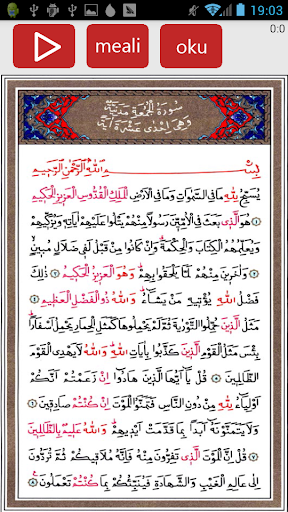 19:03
meali oku
0:0
سُورَةُ الْجُمُعَةِ مَدَنِيَّةٌ
وَهِيَ اِحْدٰى عَشْرَةَ اٰيَةً
بِسْمِ اللّٰهِ الرَّحْمٰنِ الرَّحِيمِ
يُسَبِّحُ لِلّٰهِ مَا فِى السَّمٰوَاتِ وَمَا فِى الْاَرْضِ الْمَلِكِ الْقُدُّوسِ الْعَزِيزِ الْحَكِيمِ
۝ هُوَ الَّذِى بَعَثَ فِى الْاُمِّيِّنَ رَسُولًا مِنْهُمْ يَتْلُوا عَلَيْهِمْ اٰيَاتِهِ وَيُزَكِّيهِمْ
وَيُعَلِّمُهُمُ الْكِتَابَ وَالْحِكْمَةَ وَاِنْ كَانُوا مِنْ قَبْلُ لَفِى ضَلَالٍ مُبِينٍ
۝ وَاٰخَرِينَ مِنْهُمْ لَمَّا يَلْحَقُوا بِهِمْ وَهُوَ الْعَزِيزُ الْحَكِيمُ ۝ ذٰلِكَ
فَضْلُ اللّٰهِ يُؤْتِيهِ مَنْ يَشَاءُ وَاللّٰهُ ذُو الْفَضْلِ الْعَظِيمِ ۝
مَثَلُ الَّذِينَ حُمِّلُوا التَّوْرٰيةَ ثُمَّ لَمْ يَحْمِلُوهَا كَمَثَلِ الْحِمَارِ يَحْمِلُ اَسْفَارًا
بِئْسَ مَثَلُ الْقَوْمِ الَّذِينَ كَذَّبُوا بِاٰيَاتِ اللّٰهِ وَاللّٰهُ لَا يَهْدِى الْقَوْمَ
الظَّالِمِينَ ۝ قُلْ يَا اَيُّهَا الَّذِينَ هَادُوا اِنْ زَعَمْتُمْ اَنَّكُمْ
اَوْلِيَاءُ لِلّٰهِ مِنْ دُونِ النَّاسِ فَتَمَنَّوُا الْمَوْتَ اِنْ كُنْتُمْ صَادِقِينَ ۝
وَلَا يَتَمَنَّوْنَهُ اَبَدًا بِمَا قَدَّمَتْ اَيْدِيهِمْ وَاللّٰهُ عَلِيمٌ بِالظَّالِمِينَ
۝ قُلْ اِنَّ الْمَوْتَ الَّذِى تَفِرُّونَ مِنْهُ فَاِنَّهُ مُلَاقِيكُمْ ثُمَّ تُرَدُّونَ
اِلٰى عَالِمِ الْغَيْبِ وَالشَّهَادَةِ فَيُنَبِّئُكُمْ بِمَا كُنْتُمْ تَعْمَلُونَ ۝